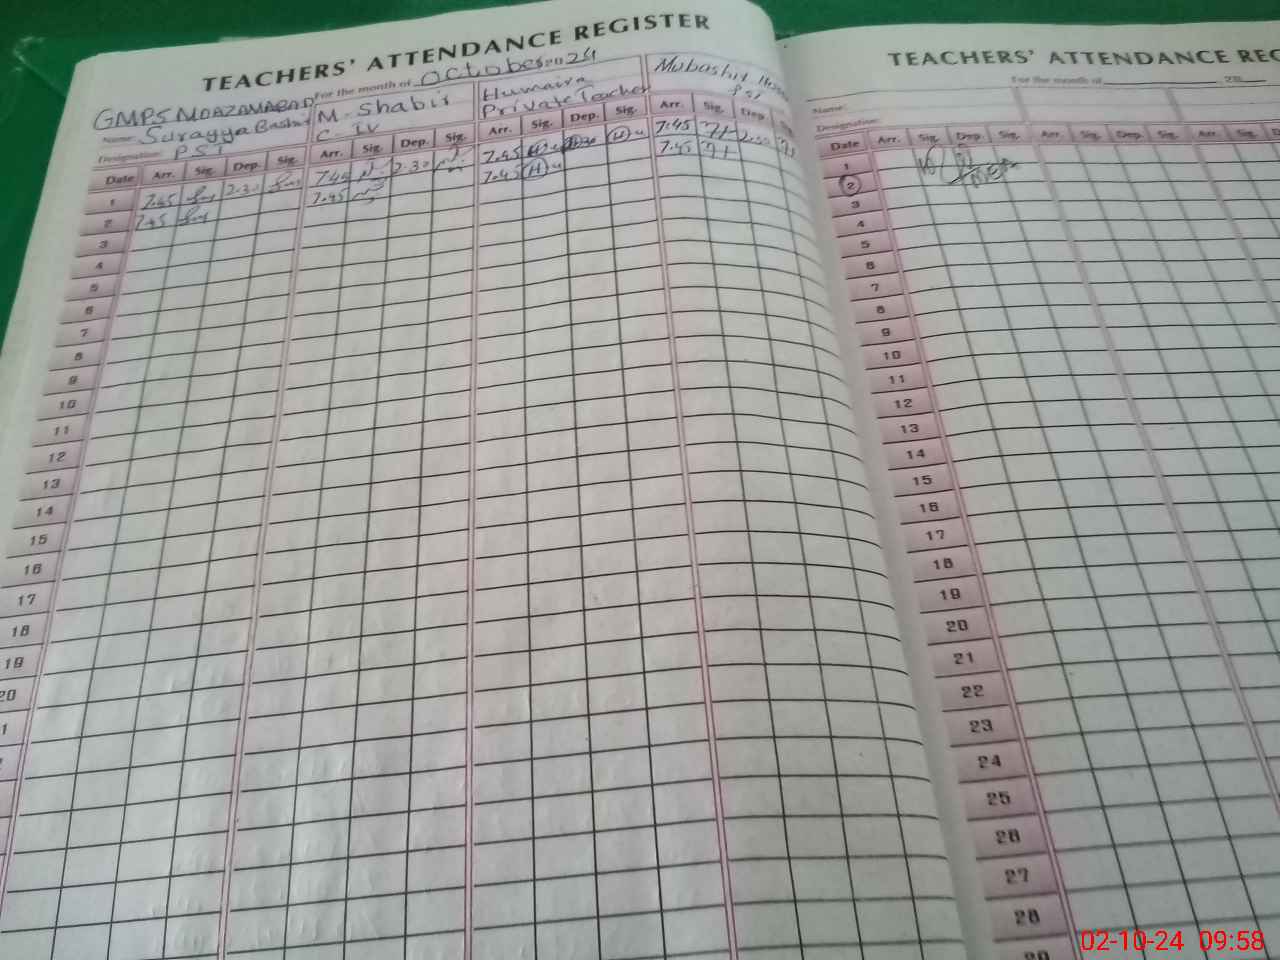 TEACHERS' ATTENDANCE REGISTER
For the month of October 2024
GMPS MOAZAMABAD
Name: Surayya Bashir M-Shabir Humaira Mubashir
Designation: PST C-IV Private Teacher PST
Date Arr. Sig. Dep. Sig. Arr. Sig. Dep. Sig. Arr. Sig. Dep. Sig. Arr. Sig. Dep. Sig.
1 7.45 2.30 7.45 2.30 7.45 2.30 7.45 2.30
2 7.45 7.45 7.45 7.45
3
4
5
6
7
8
9
10
11
12
13
14
15
16
17
18
19
20
TEACHERS' ATTENDANCE REG
For the month of 20
Name:
Designation:
Date Arr. Sig. Dep. Sig. Arr. Sig. Dep. Sig. Arr. Sig.
1
2
3
4
5
6
7
8
9
10
11
12
13
14
15
16
17
18
19
20
21
22
23
24
25
26
27
28
02-10-24 09:58